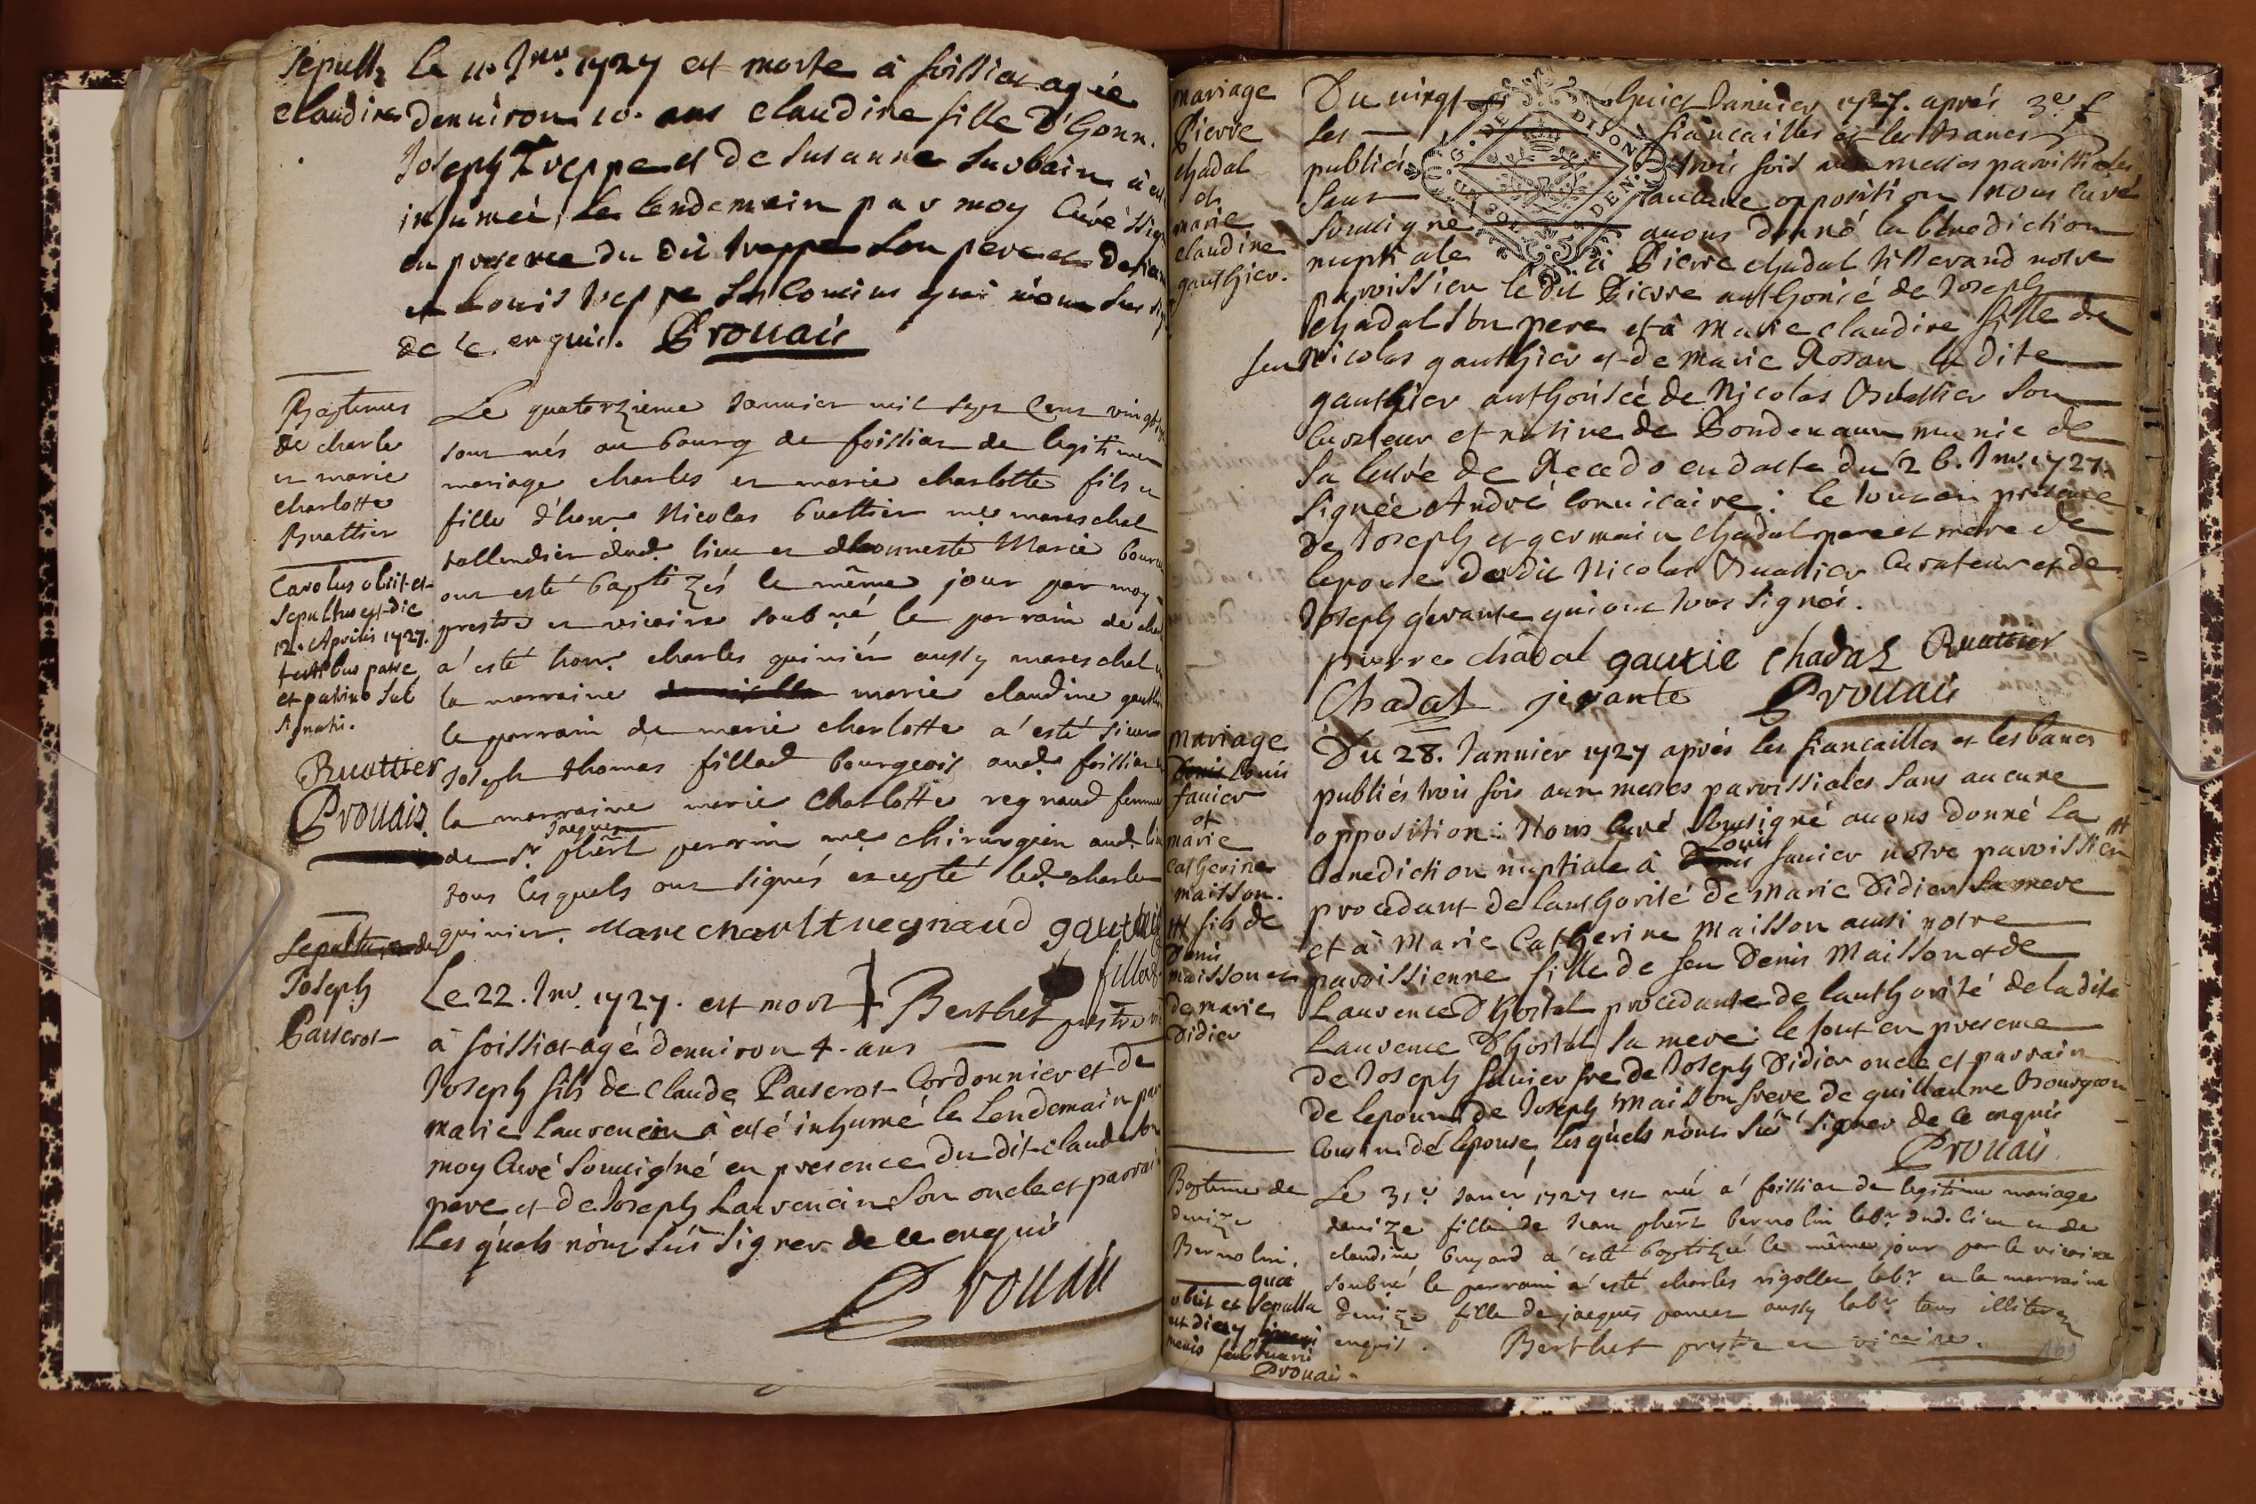 Sepult.
claudine
Le 11. Jnv. 1727 est morte à foissiat agée
denuiron 10. ans claudine fille d'honn.
Joseph Treppe et de Susanne
inhumée le lendemain par moy Curé
en presence du dit treppe son pere et de
et Louis treppe ses Cousins qui n'ont sceu
de ce enquis. Prouais
Baptemes
de charle
et marie
charlotte
Buattier
Le quatorzieme Janvier mil sept Cent vingt
sont nés au bourg de foissiat de legitime
mariage charles et marie charlotte fils et
fille d'hon. Nicolas Buattier me mareschal
taillendier dud. lieu et d'honneste Marie
ont esté baptizés le même jour par moy
prestre et vicaire soub.né le parrain de
a' esté hon. charles quinier aussy mareschal
la marraine marie claudine
le parrain de marie charlotte a' esté sieur
Joseph thomas fillod bourgeois aud. foissiat
la marraine marie Charlotte regnaud femme
de Sr. phert Jaques perrin me chirurgien aud. lieu
tous lesquels ont signés excepté led. charles
quinier. Marecharlt regnaud
fillod
Berthet prestre
Carolus obiit et
sepultus est die
12. Aprilis 1727.
testibus patre
et patrino sub
signatis.
Buattier
Prouais.
Sepulture de
Joseph
Pauserot
Le 22. Jnv. 1727. est mort
à foissiat agé denuiron 4. ans
Joseph fils de Claude Pauserot Cordonnier et de
marie Laurencin à esté inhumé le Lendemain par
moy Curé soussigné en presence du dit claude son
pere et de Joseph Laurencin son oncle et parrain
Les quels n'ont sceu signer de ce enquis
Prouais
mariage
Pierre
chadal
et
marie
claudine
gauthier.
Du vingt huict Janvier 1727. aprés
les fiancailles et les bancs
publiés trois fois aux messes paroissiales
sans aucune opposition nous Curé
soussigné auons donné la bénédiction
nuptiale à Pierre chadal notre
Paroissien le dit Pierre authorisé de Joseph
chadal son pere et à Marie claudine fille de
feu Nicolas gauthier et de marie Rosan la dite
gauthier authorisée de Nicolas Buattier son
Curateur et native de Dondenaux munie de
sa lettre de Recedo en datte du 26. Jnv. 1727.
signée André convicaire: le tout en presence
de Joseph et germain chadal pere et frere de
lepoux du dit Nicolas Buattier Curateur et de
Joseph gevante qui ont tous signés.
pierre chadal gautie chadal Buattier
Chadal jevante Prouais
mariage
Louis
fauier
et
marie
catherine
maisson.
# fils de
Denis
maisson et
de marie
Didier
Du 28. Janvier 1727 aprés les fiancailles et les bancs
publiés trois fois aux messes paroissiales sans aucune
opposition: Nous Curé soussigné auons donné la
benediction nuptiale à Louis fauier notre paroissien #
procedant de lauthorité de Marie Didier sa mere
et à Marie Catherine Maisson aussi notre
paroissienne fille de feu Denis Maisson et de
Laurence D'hostal procedante de lauthorité de la dite
Laurence D'hostal sa mere: le tout en presence
de Joseph fauier fre de Joseph Didier oncle et parrain
de lepoux de Joseph Maisson frere de guillaume bourgeon
cousin de lepouse, lesquels n'ont sceu signer de ce enquis
Prouais
Bapteme de
denize
Bernolin.
quae
obiit et sepulta
est die
mensis februarii
Prouais.
Le 31e. Janer 1727 est née a' foissiat de legitime mariage
denize fille de Jean phert bernolin labr. dud. lieu et de
claudine buyard a' esté baptizée le même jour par le vicaire
soubné le parrain a' esté charles rigollet labr. et la marraine
denize fille de jaques poncet aussy labr. tous illiterez
enquis. Berthet prestre et vicaire.